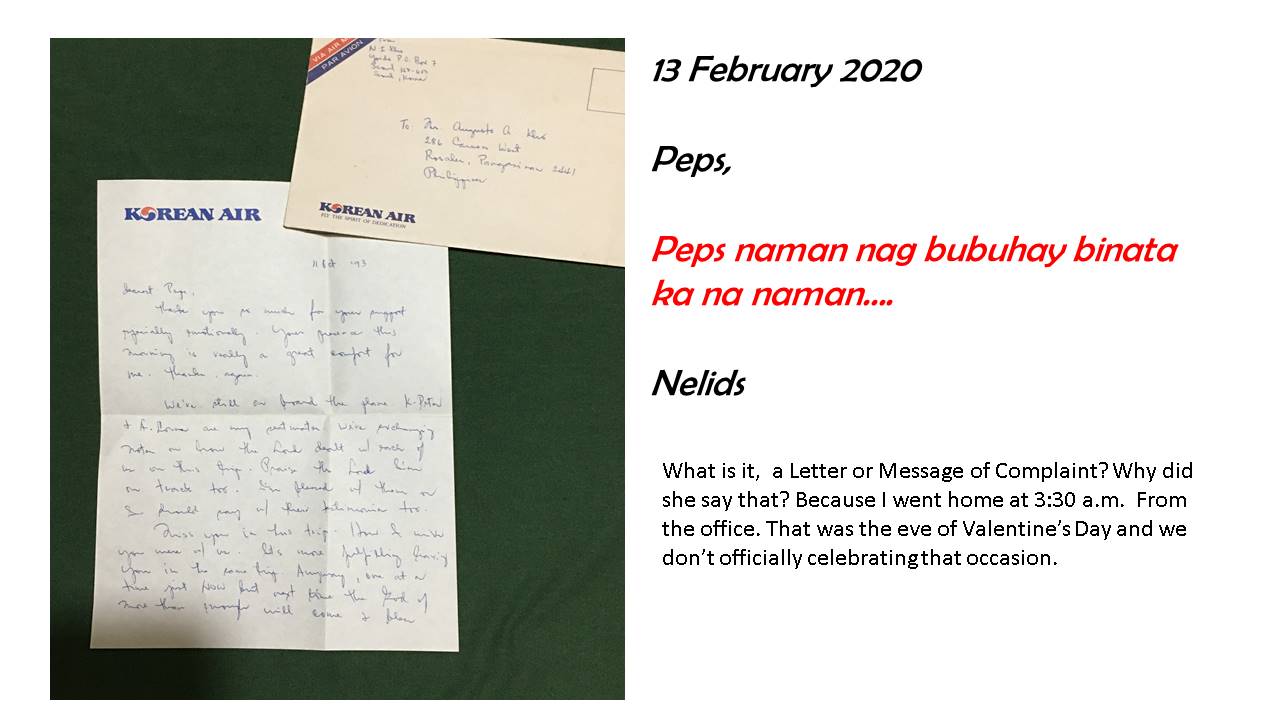 VIA AIR MAIL
PAR AVION
Seoul, Korea
To: Mr. Augusto A.
286 Carmen West
Rosales, Pangasinan 2441
Philippines
KOREAN AIR
FLY THE SPIRIT OF DEDICATION
KOREAN AIR
'93
Dearest Peps,
Thank you so much for your support
especially emotionally. Your presence this
morning is really a great comfort for
me. Thanks again.
We're still on board the plane.
are my seatmates. We're exchanging
notes on how the Lord dealt w/ each of
us on this trip. Praise the Lord
on track too. I'm pleased w/ them
too.
Miss you in this trip. How I wish
you were w/ us. It's more fulfilling having
you in the same trip. Anyway, one at a
time just NOW but next time the God of
more than enough will come &
13 February 2020
Peps,
Peps naman nag bubuhay binata
ka na naman....
Nelids
What is it,  a Letter or Message of Complaint? Why did
she say that? Because I went home at 3:30 a.m.  From
the office. That was the eve of Valentine's Day and we
don't officially celebrating that occasion.